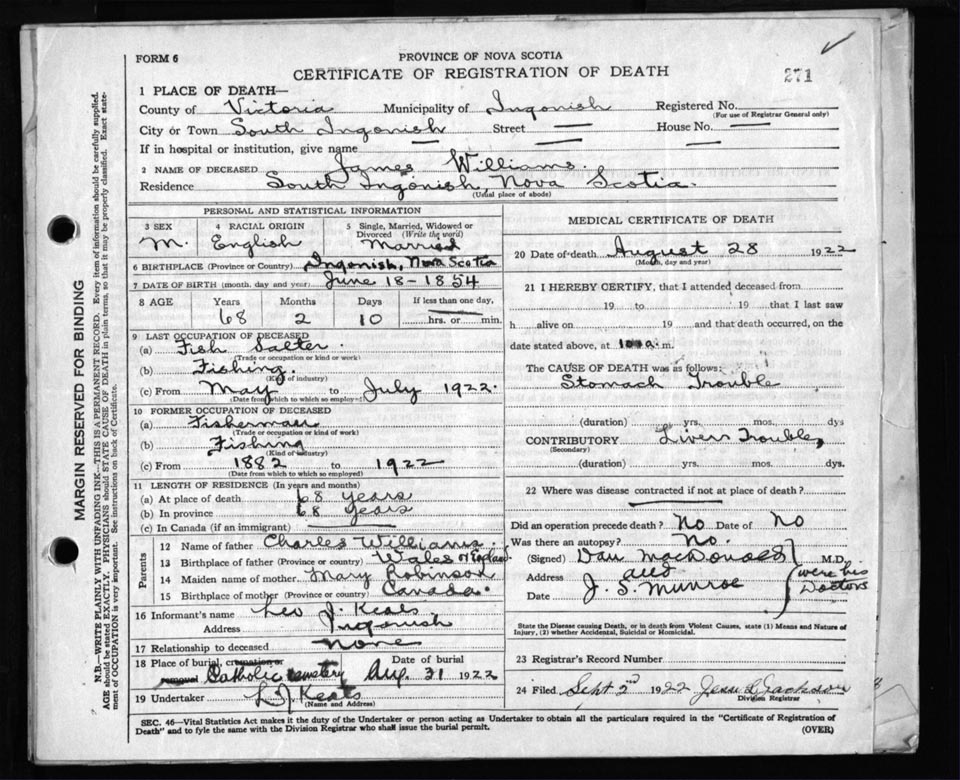 FORM 6
PROVINCE OF NOVA SCOTIA
CERTIFICATE OF REGISTRATION OF DEATH
271
1 PLACE OF DEATH—
County of Victoria Municipality of Ingonish Registered No.
(For use of Registrar General only)
City or Town South Ingonish Street — House No. —
If in hospital or institution, give name — — —
2 NAME OF DECEASED James Williams.
Residence South Ingonish, Nova Scotia.
(Usual place of abode)
PERSONAL AND STATISTICAL INFORMATION
3 SEX 4 RACIAL ORIGIN 5 Single, Married, Widowed or Divorced (Write the word)
M. English Married
6 BIRTHPLACE (Province or Country) Ingonish, Nova Scotia
7 DATE OF BIRTH (month, day and year) June 18-1854
8 AGE Years Months Days If less than one day,
68 2 10 hrs. or min.
9 LAST OCCUPATION OF DECEASED
(a) Fish Salter.
(Trade or occupation or kind of work)
(b) Fishing.
(Kind of industry)
(c) From May to July 1922.
(Date from which to which so employed)
10 FORMER OCCUPATION OF DECEASED
(a) Fisherman
(Trade or occupation or kind of work)
(b) Fishing
(Kind of industry)
(c) From 1882 to 1922
(Date from which to which so employed)
11 LENGTH OF RESIDENCE (In years and months)
(a) At place of death 68 years
(b) In province 68 years
(c) In Canada (if an immigrant)
Parents
12 Name of father Charles Williams.
13 Birthplace of father (Province or country) Wales or England
14 Maiden name of mother Mary Robinson
15 Birthplace of mother (Province or country) Canada.
16 Informant's name Leo J. Keats.
Address Ingonish
17 Relationship to deceased None
18 Place of burial, cremation or removal Catholic cemetery Date of burial Aug. 31 1922
19 Undertaker L J Keats
(Name and Address)
MEDICAL CERTIFICATE OF DEATH
20 Date of death August 28 1922
(Month, day and year)
21 I HEREBY CERTIFY, that I attended deceased from
19 to 19 that I last saw
h alive on 19 and that death occurred, on the
date stated above, at m.
The CAUSE OF DEATH was as follows:
Stomach Trouble
(duration) yrs. mos. dys
CONTRIBUTORY Liver Trouble,
(Secondary)
(duration) yrs. mos. dys.
22 Where was disease contracted if not at place of death?
Did an operation precede death? No Date of No
Was there an autopsy? No.
(Signed) Dan MacDonald M.D.
Address and
Date J. S. Munroe
were his Doctors
State the Disease causing Death, or in death from Violent Causes, state (1) Means and Nature of
Injury, (2) whether Accidental, Suicidal or Homicidal.
23 Registrar's Record Number
24 Filed Sept 2nd 1922
Division Registrar
SEC. 46—Vital Statistics Act makes it the duty of the Undertaker or person acting as Undertaker to obtain all the particulars required in the "Certificate of Registration of
Death" and to fyle the same with the Division Registrar who shall issue the burial permit.
(OVER)
MARGIN RESERVED FOR BINDING
N.B.—WRITE PLAINLY WITH UNFADING INK—THIS IS A PERMANENT RECORD. Every item of information should be carefully supplied.
AGE should be stated EXACTLY. PHYSICIANS should STATE CAUSE OF DEATH in plain terms, so that it may be properly classified. Exact state-
ment of OCCUPATION is very important. See instructions on back of Certificate.